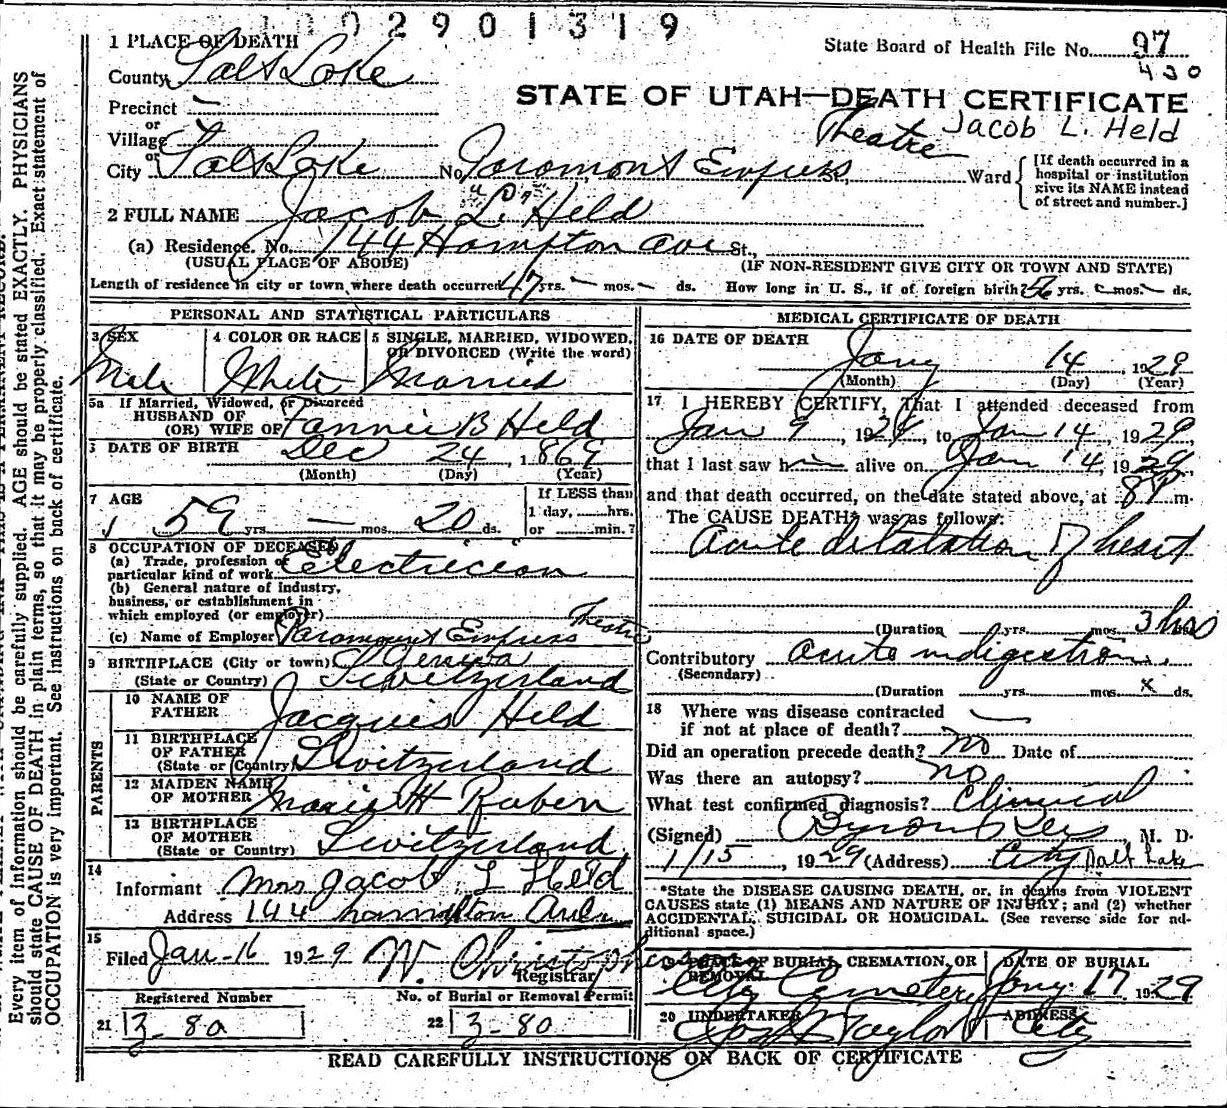 1002901319
1 PLACE OF DEATH
State Board of Health File No. 97
430
County Salt Lake
STATE OF UTAH—DEATH CERTIFICATE
Precinct —
or
Village
Theatre Jacob L. Held
or
City Salt Lake No. Paramont Empress St., Ward
[If death occurred in a hospital or institution give its NAME instead of street and number.]
2 FULL NAME Jacob L. Held
(a) Residence. No. 144 Hampton Ave St.,
(USUAL PLACE OF ABODE) (IF NON-RESIDENT GIVE CITY OR TOWN AND STATE)
Length of residence in city or town where death occurred 47 yrs. — mos. — ds. How long in U. S., if of foreign birth? 56 yrs. — mos. — ds.
PERSONAL AND STATISTICAL PARTICULARS
3 SEX 4 COLOR OR RACE 5 SINGLE, MARRIED, WIDOWED, OR DIVORCED (Write the word)
Male White Married
5a If Married, Widowed, or Divorced
HUSBAND OF
(OR) WIFE OF Fannie B Held
6 DATE OF BIRTH Dec 24, 1869
(Month) (Day) (Year)
7 AGE If LESS than
59 yrs. — mos. 20 ds. 1 day, hrs.
or min.?
8 OCCUPATION OF DECEASED
(a) Trade, profession or
particular kind of work Electricion
(b) General nature of industry,
business, or establishment in
which employed (or employer)
(c) Name of Employer Paramount Empress Theatre
9 BIRTHPLACE (City or town) Geneva
(State or Country) Switzerland
PARENTS
10 NAME OF
FATHER Jacques Held
11 BIRTHPLACE
OF FATHER
(State or Country) Switzerland
12 MAIDEN NAME
OF MOTHER Marie H Raben
13 BIRTHPLACE
OF MOTHER
(State or Country) Switzerland
14
Informant Mrs Jacob L Held
Address 144 Hampton Ave
15
Filed Jan-16 1929 W. Christopherson
Registrar
Registered Number No. of Burial or Removal Permit
21 3-80 22 3-80
MEDICAL CERTIFICATE OF DEATH
16 DATE OF DEATH
Jany 14, 1929
(Month) (Day) (Year)
17 I HEREBY CERTIFY, That I attended deceased from
Jan 9, 1929, to Jan 14, 1929,
that I last saw him alive on Jan 14, 1929,
and that death occurred, on the date stated above, at 8 P m.
The CAUSE DEATH* was as follows:
Acute dilatation of heart
(Duration yrs. mos. 3 hrs
Contributory Acute indigestion.
(Secondary)
(Duration yrs. mos. x ds.
18 Where was disease contracted
if not at place of death? —
Did an operation precede death? no Date of
Was there an autopsy? no
What test confirmed diagnosis? Clinical
(Signed) Byron Rees M. D.
1/15, 1929 (Address) City Salt Lake
*State the DISEASE CAUSING DEATH, or, in deaths from VIOLENT
CAUSES state (1) MEANS AND NATURE OF INJURY; and (2) whether
ACCIDENTAL, SUICIDAL OR HOMICIDAL. (See reverse side for ad-
ditional space.)
19 PLACE OF BURIAL, CREMATION, OR REMOVAL DATE OF BURIAL
City Cemetery Jany 17 1929
20 UNDERTAKER ADDRESS
Jos Wm Taylor City
READ CAREFULLY INSTRUCTIONS ON BACK OF CERTIFICATE
Every item of information should be carefully supplied. AGE should be stated EXACTLY. PHYSICIANS
should state CAUSE OF DEATH in plain terms, so that it may be properly classified. Exact statement of
OCCUPATION is very important. See instructions on back of certificate.